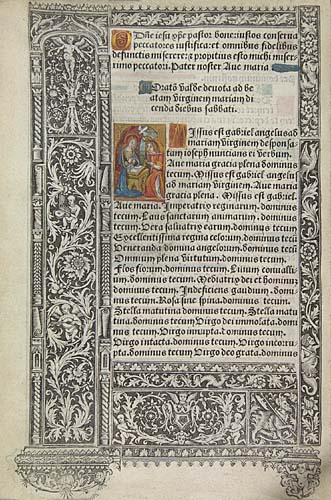 O dñe iesu xp̄e pastor bone: iustos conserva
peccatores iustifica: et omnibus fidelibus
defunctis miserere: z propitius esto mihi miser-
rimo peccatori. Pater noster Ave maria
Oratō valde devota ad be
atam virginem mariam di
cenda diebus sabbati.
Missus est gabriel angelus ad
mariam virginem desponsa
tam ioseph nuncians ei verbum.
Ave maria gracia plena dominus
tecum. Missus est gabriel angelus
ad mariam virginem. Ave maria
gracia plena. Missus est gabriel.
Ave maria. Imperatrix reginarum, dominus
tecum. Laus sanctarum animarum. dominus
tecum. Vera salvatrix earum, dominus tecum
Excellentissima regina celorum, dominus tecū
Veneranda domina angelorum, dominus tecū
Omnium plena virtutum, dominus tecum.
Flos florum, dominus tecum. Lilium convalli-
um, dominus tecum. Mediatrix dei et hominū
dominus tecum. Indeficiens gaudium. domi-
nus tecum. Rosa sine spina, dominus tecum.
Stella matutina dominus tecum. Stella matu
tina, dominus tecum. Virgo dei immolata, domi-
nus tecum. Virgo inrupta. dominus tecum.
Virgo intacta. dominus tecum. Virgo incorru
pta, dominus tecum. Virgo deo grata. dominus